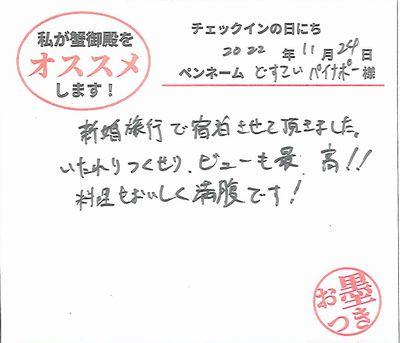 私が蟹御殿を
オススメ
します！
チェックインの日にち
2022 年 11 月 24 日
ペンネーム どすこいパイナポー 様
新婚旅行で宿泊させて頂きました。
いたれりつくせり、ビューも最 高!!
料理もおいしく満腹です!
お墨つき